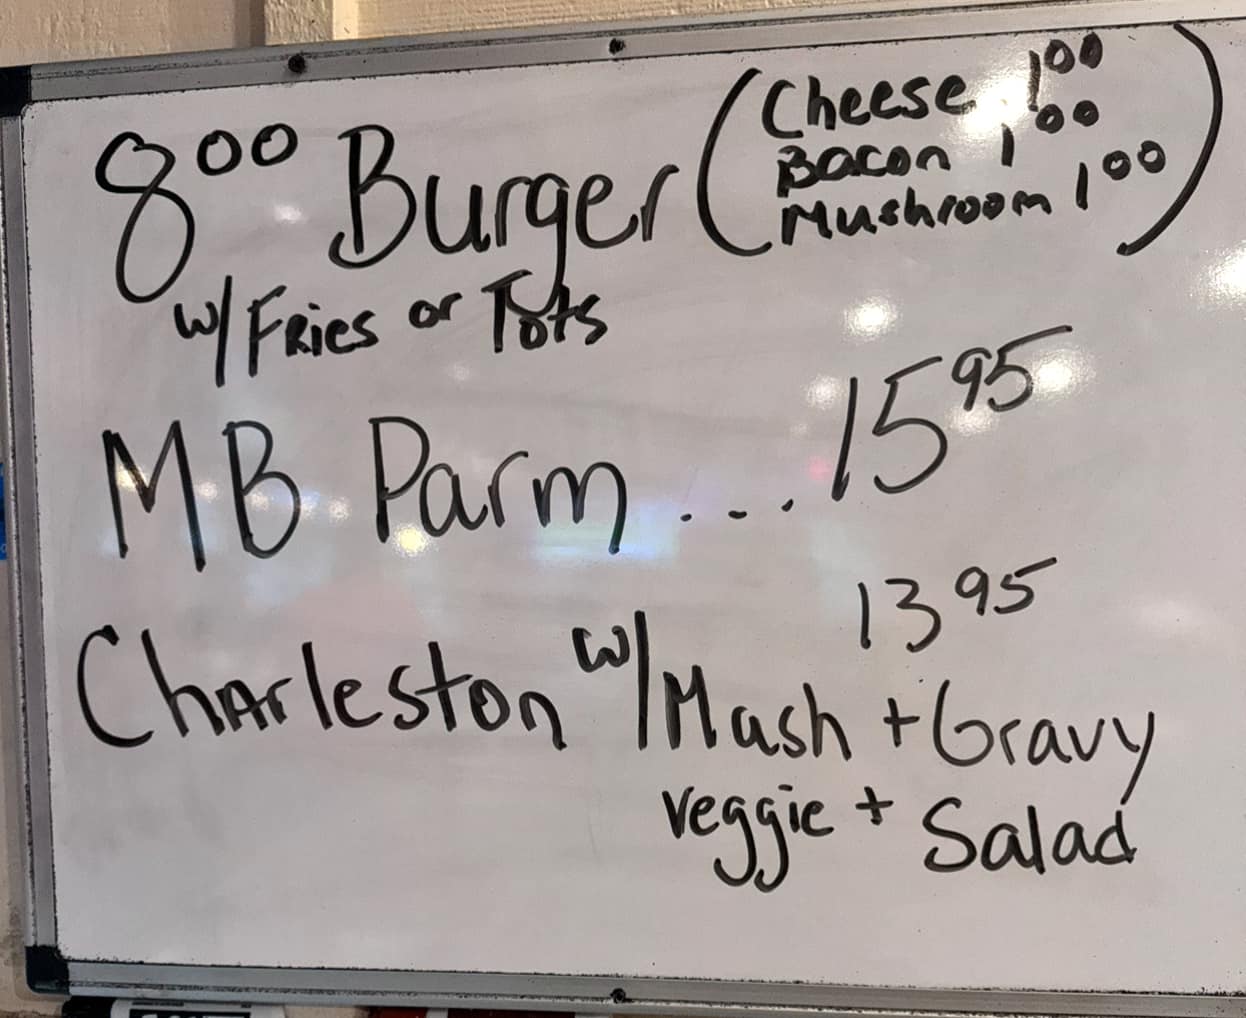 8⁰⁰ Burger (Cheese 1⁰⁰
Bacon 1⁰⁰
Mushroom 1⁰⁰)
w/ Fries or Tots
MB Parm ... 15⁹⁵
13⁹⁵
Charleston w/ Mash + Gravy
veggie + Salad